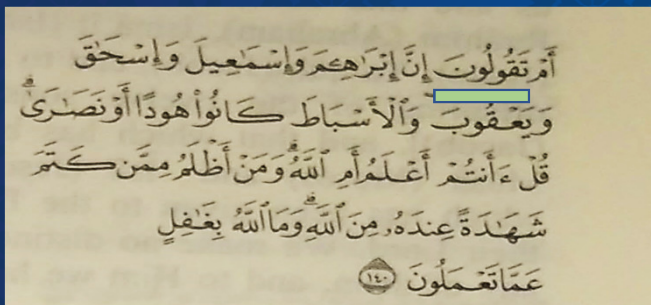 أَمْ تَقُولُونَ إِنَّ إِبْرَٰهِـۧمَ وَإِسْمَٰعِيلَ وَإِسْحَٰقَ
وَيَعْقُوبَ وَٱلْأَسْبَاطَ كَانُوا۟ هُودًا أَوْ نَصَٰرَىٰ ۗ
قُلْ ءَأَنتُمْ أَعْلَمُ أَمِ ٱللَّهُ ۗ وَمَنْ أَظْلَمُ مِمَّن كَتَمَ
شَهَٰدَةً عِندَهُۥ مِنَ ٱللَّهِ ۗ وَمَا ٱللَّهُ بِغَٰفِلٍ
عَمَّا تَعْمَلُونَ ١٤٠